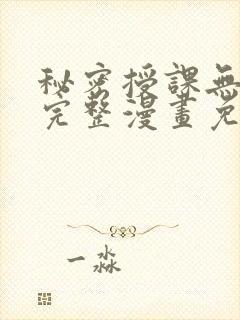 秘密授課無
完整漫畫免
一淼